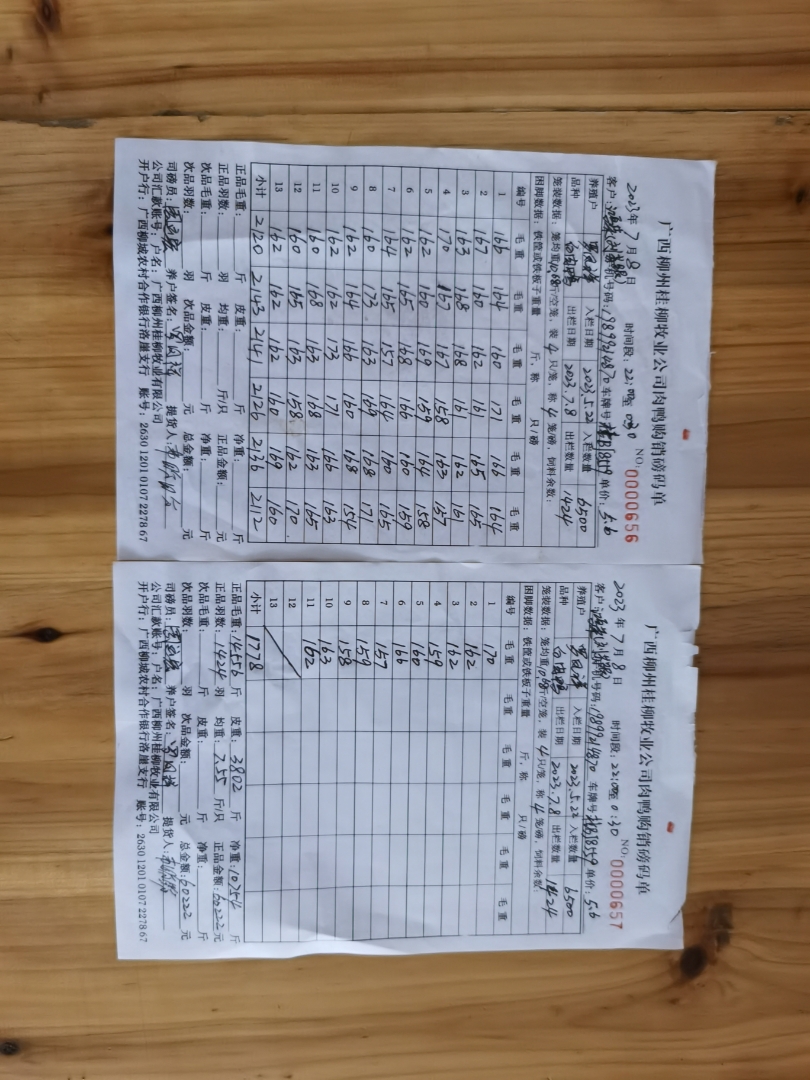 广西柳州桂柳牧业公司肉鸭购销磅码单
2023年7月8日 时间段：22:00至0:30 NO: 0000656
客户： 手机号码：19899214870 车牌号 单价：5.6
养殖户 入栏日期 2023.5.22 入栏数量 6500
品种 出栏日期 2023.7.8 出栏数量 1424
笼装数据：笼均重10.68斤/空笼，装4只/笼，称4笼/磅，饲料余数：
困脚数据：铁筐或铁板子重量 斤，称 只/磅
编号 毛重 毛重 毛重 毛重 毛重 毛重
1 166 164 160 171 166 164
2 167 160 162 161 165 165
3 163 168 168 161 162 161
4 170 167 167 158 163 157
5 162 160 169 159 164 158
6 162 165 168 166 160 159
7 164 165 157 164 160 165
8 160 173 163 169 168 171
9 162 164 166 160 168 154
10 162 162 173 171 166 163
11 160 168 163 168 163 165
12 160 165 163 158 162 170
13 162 162 162 160 169 160
小计 2120 2143 2141 2126 2136 2112
正品毛重： 斤 皮重： 斤 净重： 斤
正品羽数： 羽 均重： 斤/只 正品金额： 元
次品毛重： 斤 皮重： 斤 净重： 斤
次品羽数： 羽 次品金额： 元 总金额： 元
司磅员： 养户签名： 提货人：
公司汇款账号：户名：广西柳州桂柳牧业有限公司
开户行：广西柳城农村合作银行洛崖支行 账号：2630 1201 0107 2278 67
广西柳州桂柳牧业公司肉鸭购销磅码单
2023年7月8日 时间段：22:00至0:30 NO: 0000657
客户： 手机号码：19899214870 车牌号 单价：5.6
养殖户 入栏日期 2023.5.22 入栏数量 6500
品种 出栏日期 2023.7.8 出栏数量 1424
笼装数据：笼均重10.68斤/空笼，装4只/笼，称4笼/磅，饲料余数：
困脚数据：铁筐或铁板子重量 斤，称 只/磅
编号 毛重 毛重 毛重 毛重 毛重 毛重
1 170
2 162
3 162
4 159
5 160
6 166
7 157
8 159
9 158
10 163
11 162
12
13
小计 1778
正品毛重：14556斤 皮重：3802斤 净重：10754斤
正品羽数：1424羽 均重：7.55斤/只 正品金额：60222元
次品毛重： 斤 皮重： 斤 净重： 斤
次品羽数： 羽 次品金额： 元 总金额：60222元
司磅员： 养户签名： 提货人：
公司汇款账号：户名：广西柳州桂柳牧业有限公司
开户行：广西柳城农村合作银行洛崖支行 账号：2630 1201 0107 2278 67